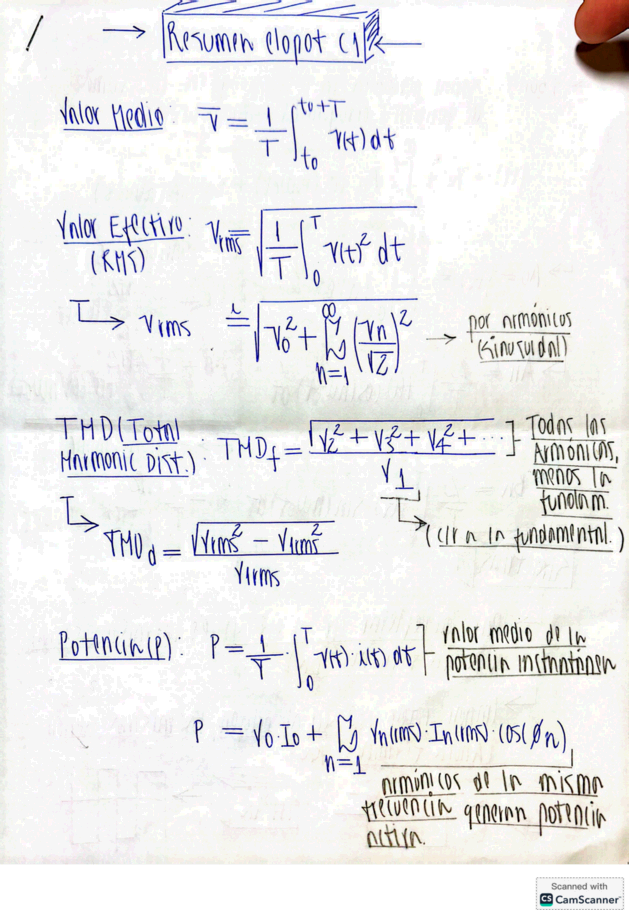 / → Resumen elopot C1 ←
Valor Medio: V̅ = 1/T ∫_{to}^{to+T} v(t) dt
Valor Efectivo: Vrms = √(1/T ∫_0^T v(t)² dt)
(RMS)
↳ Vrms = √(V0² + Σ_{n=1}^{∞} (Vn/√2)²) → por armónicos
(sinusoidal)
THD (Total Harmonic Dist.): THD_f = √(V2² + V3² + V4² + ...) / V1
Todas las
Armónicas,
menos la
fundam.
(c/r a la fundamental.)
↳ THD_d = √(Vrms² - V1rms²) / V1rms
Potencia (P): P = 1/T · ∫_0^T v(t) · i(t) dt
valor medio de la
potencia instantánea
P = V0 · I0 + Σ_{n=1} Vn(rms) · In(rms) · cos(Øn)
armónicos de la misma
frecuencia generan potencia
activa.
Scanned with
CS CamScanner